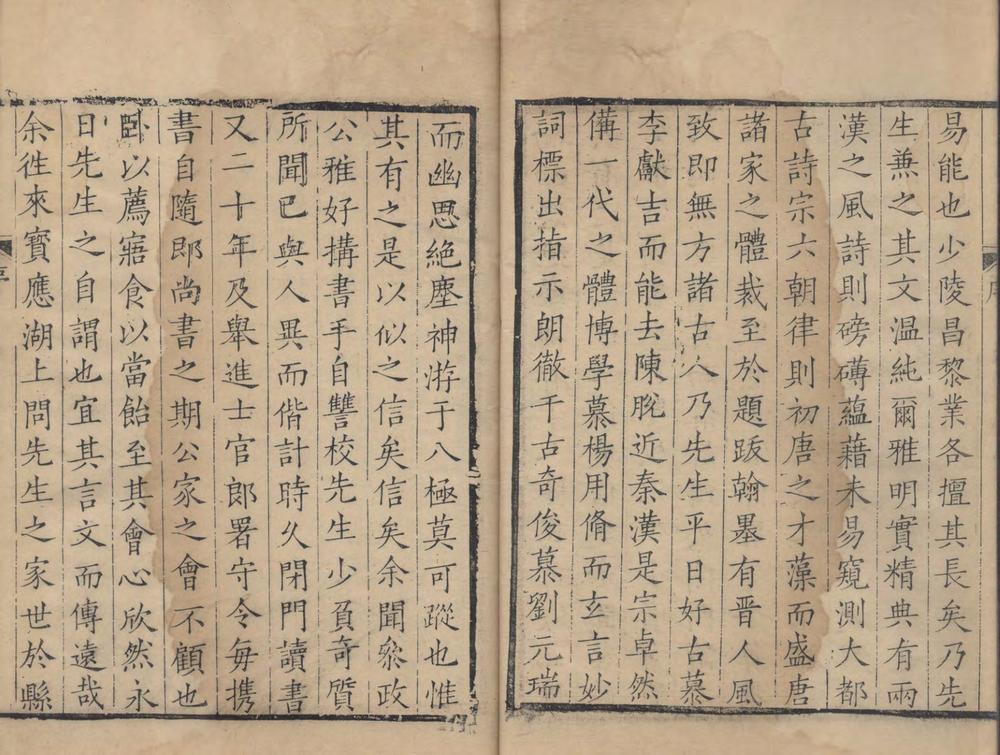 易能也少陵昌黎業各擅其長矣乃先
生兼之其文溫純爾雅明實精典有兩
漢之風詩則磅礴蘊藉未易窺測大都
古詩宗六朝律則初唐之才藻而盛唐
諸家之體裁至於題跋翰墨有晋人風
致即無方諸古人乃先生平日好古慕
李獻吉而能去陳脫近秦漢是宗卓然
備一代之體博學慕楊用脩而玄言妙
詞標出指示朗徹千古奇俊慕劉元瑞
而幽思絕塵神游于八極莫可蹤也惟
其有之是以似之信矣信矣余聞叅政
公雅好搆書手自讐校先生少負奇質
所聞已與人異而偕計時久閉門讀書
又二十年及舉進士官郎署守令每携
書自隨即尚書之期公家之會不顧也
卧以薦寤食以當飴至其會心欣然永
日先生之自謂也宜其言文而傳遠哉
余徃來寶應湖上問先生之家世於縣